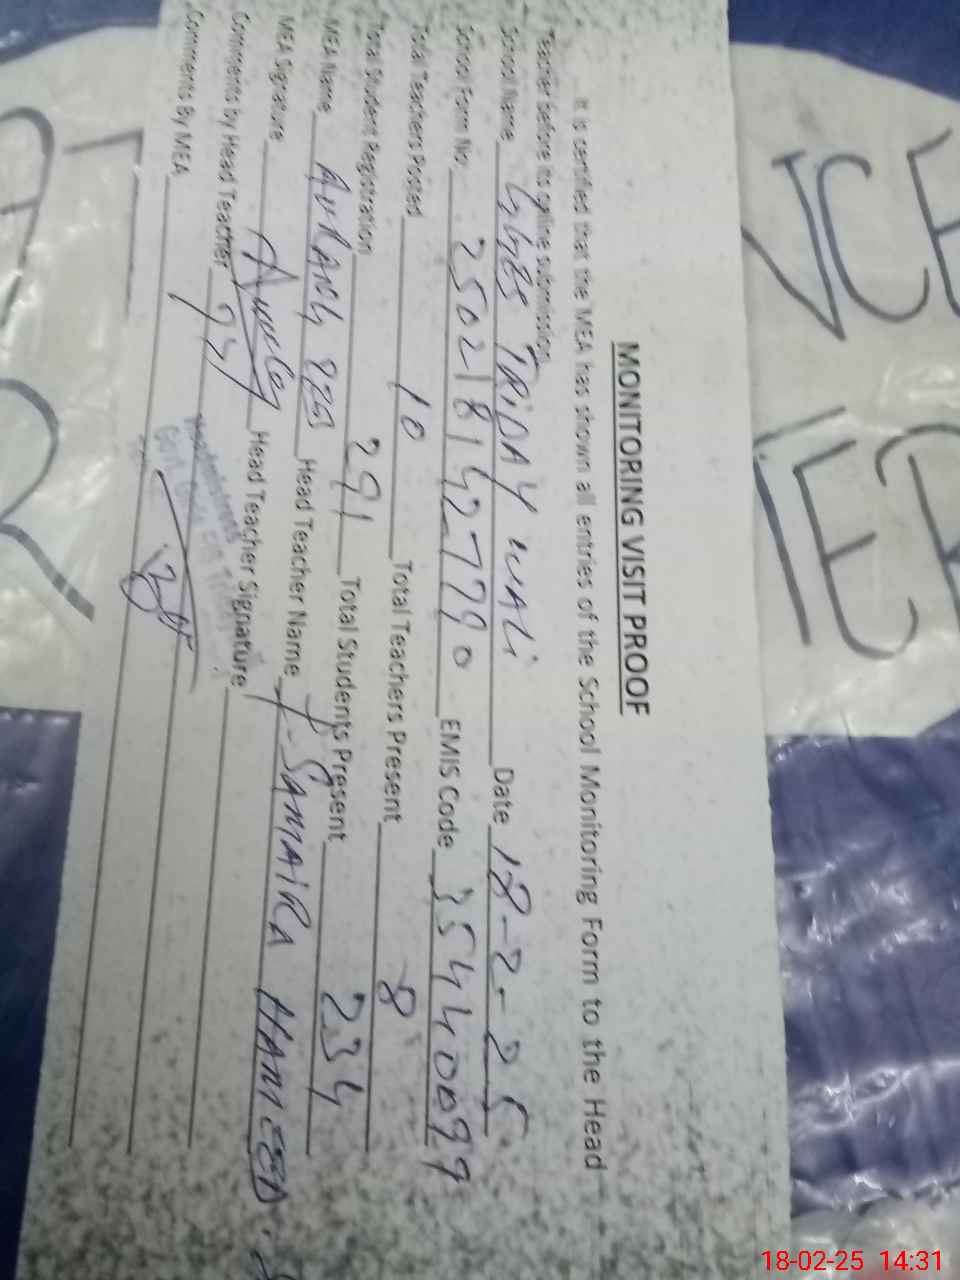 MONITORING VISIT PROOF
It is certified that the MEA has shown all entries of the School Monitoring Form to the Head
Teacher before its online submission.
School Name GGES TRIDAY WALI Date 18-2-25
School Form No. 2502181427790 EMIS Code 35440099
Total Teachers Posted 10 Total Teachers Present 8
Total Student Registration 291 Total Students Present 234
MEA Name AURANG Head Teacher Name SAMAIRA HAMEED
MEA Signature Head Teacher Signature
Comments by Head Teacher
Comments By MEA
18-02-25 14:31